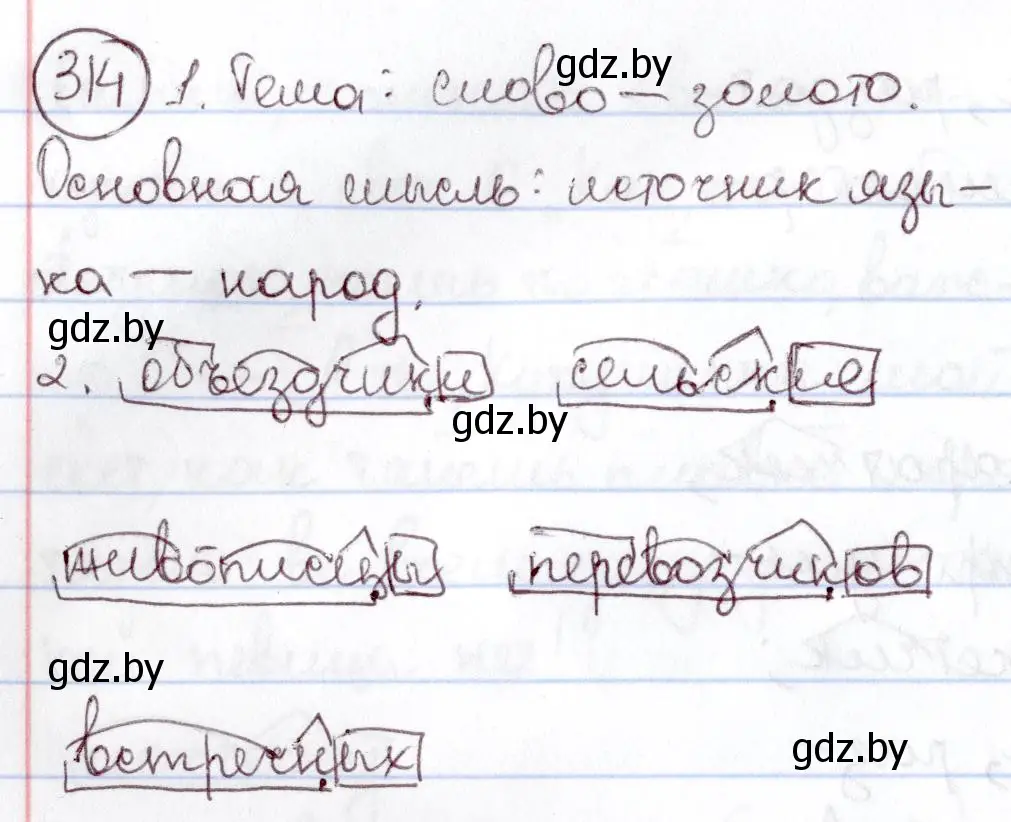 gdz.by
314 1. Тема: слово — золото.
Основная мысль: источник язы-
ка — народ.
gdz.by
2. объездчики сельские
gdz.by
живописцы перевозчиков
gdz.by
встречных
gdz.by